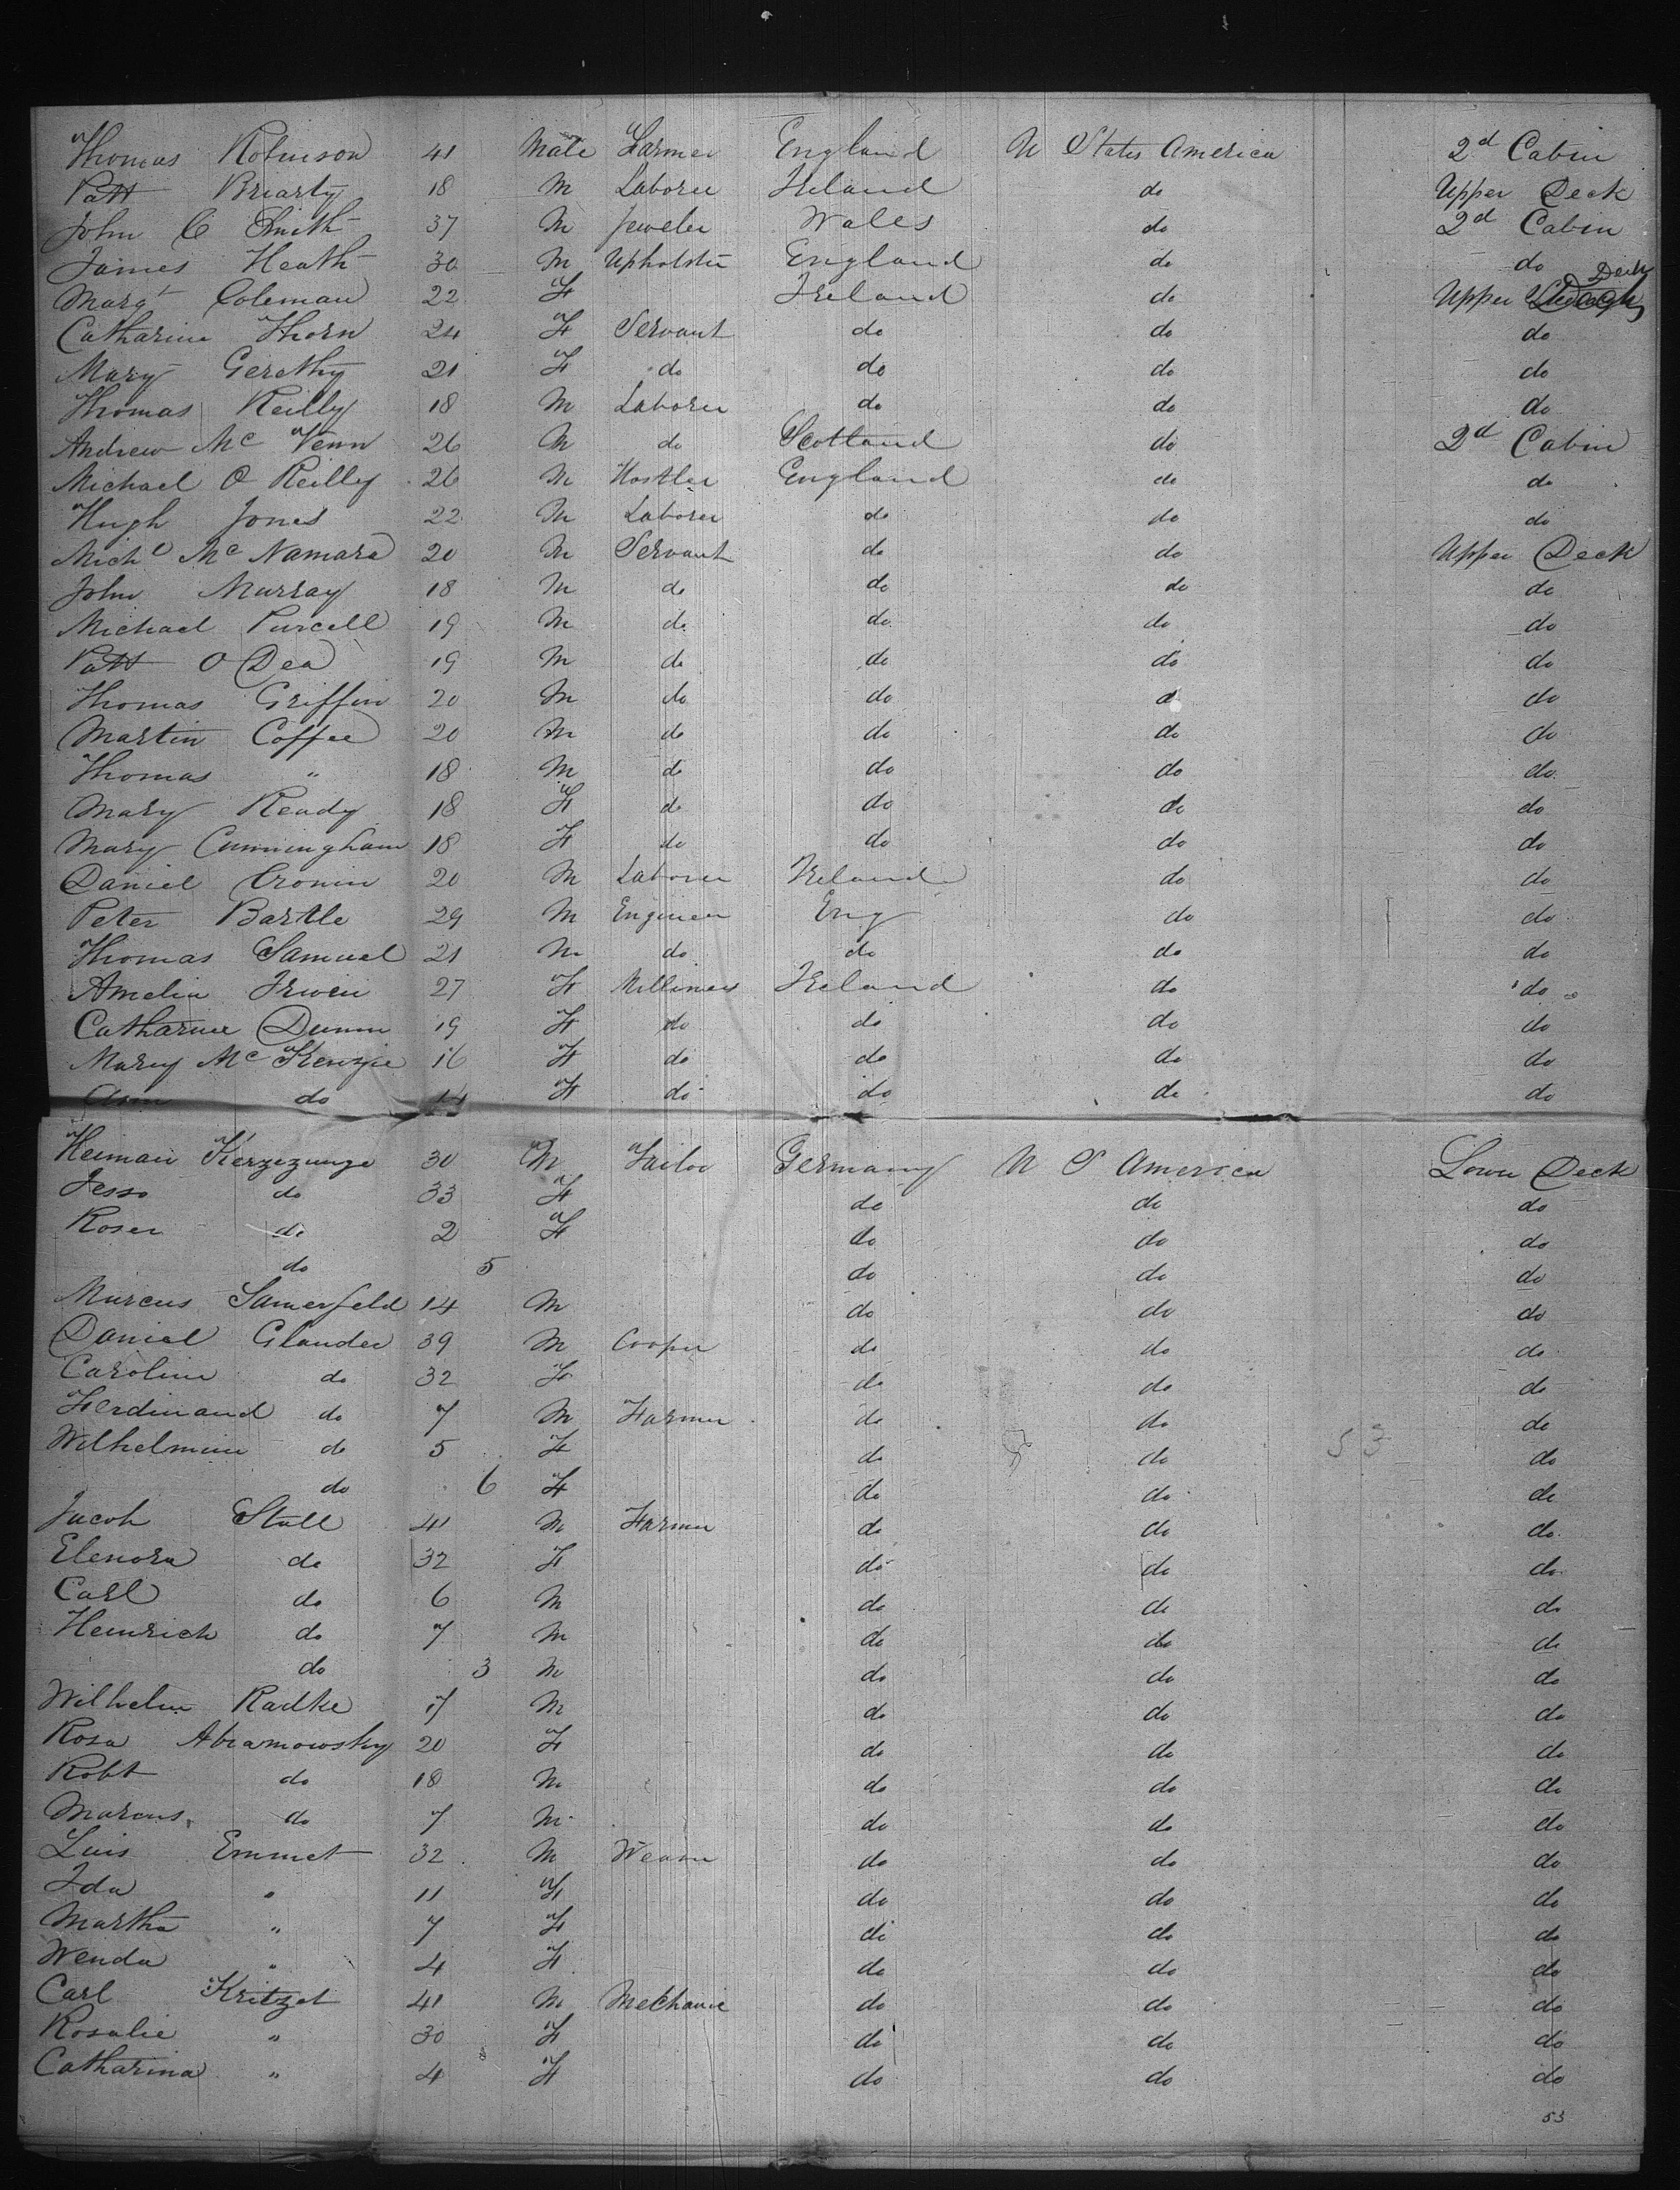 Thomas Robinson 41 Male Farmer England U States America 2d Cabin
Patt Briarty 18 M Laborer Ireland do Upper Deck
John C Smith 37 M Jeweler Wales do 2d Cabin
James Heath 30 M Upholster England do do
Margt Coleman 22 F Ireland do Upper Deck
Catharine Thorn 24 F Servant do do do
Mary Gerethy 21 F do do do do
Thomas Reilly 18 M Laborer do do do
Andrew Mc Venn 26 M do Scotland do 2d Cabin
Michael O Reilly 26 M Hostler England do do
Hugh Jones 22 M Laborer do do do
Michl Mc Namara 20 M Servant do do Upper Deck
John Murray 18 M do do do do
Michael Purcell 19 M do do do do
Patt O Dea 19 M do do do do
Thomas Griffin 20 M do do d do
Martin Coffee 20 M do do do do
Thomas " 18 M do do do do
Mary Ready 18 F do do do do
Mary Cunningham 18 F do do do do
Daniel Cronin 20 M Laborer Ireland do do
Peter Bartle 29 M Engineer Eng do do
Thomas Samuel 21 M do do do do
Amelia Irwin 27 F Milliner Ireland do do
Catharine Dunn 19 F do do do do
Mary Mc Kenzie 16 F do do do do
Ann do 14 F do do do do
Heiman 30 M Tailor Germany U S America Lower Deck
Jesso do 33 F do do do
Roser do 2 F do do do
do 5 do do do
Marcus Samerfeld 14 M do do do
Daniel Glander 39 M Cooper do do do
Caroline do 32 F do do do
Ferdinand do 7 M Farmer do do do
Wilhelmine do 5 F do do 53 do
do 6 F do do do
Jacob Stall 41 M Farmer do do do
Elenora do 32 F do do do
Carl do 6 M do do do
Heinrich do 7 M do do do
do 3 M do do do
Wilhelm Radke 17 M do do do
Rosa Abramowsky 20 F do do do
Robt do 18 M do do do
Marcus do 7 M do do do
Luis Emmet 32 M Weaver do do do
Ida " 11 F do do do
Martha " 7 F do do do
Wenda " 4 F do do do
Carl Kritzet 41 M Mechanic do do do
Rosalie " 30 F do do do
Catharina " 4 F do do do
53